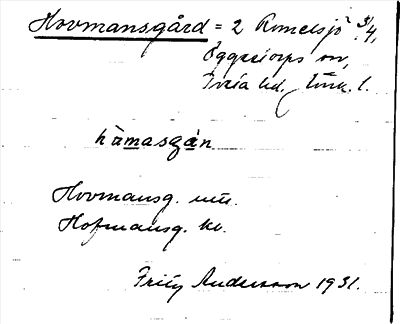 Hovmansgård = 2 Romelsjö 3/4,
Öggestorps sn,
Tveta hd, Jönk. l.
håmasgán
Hovmansg. uts.
Hofmansg. kt.
Fritz Andersson 1931.